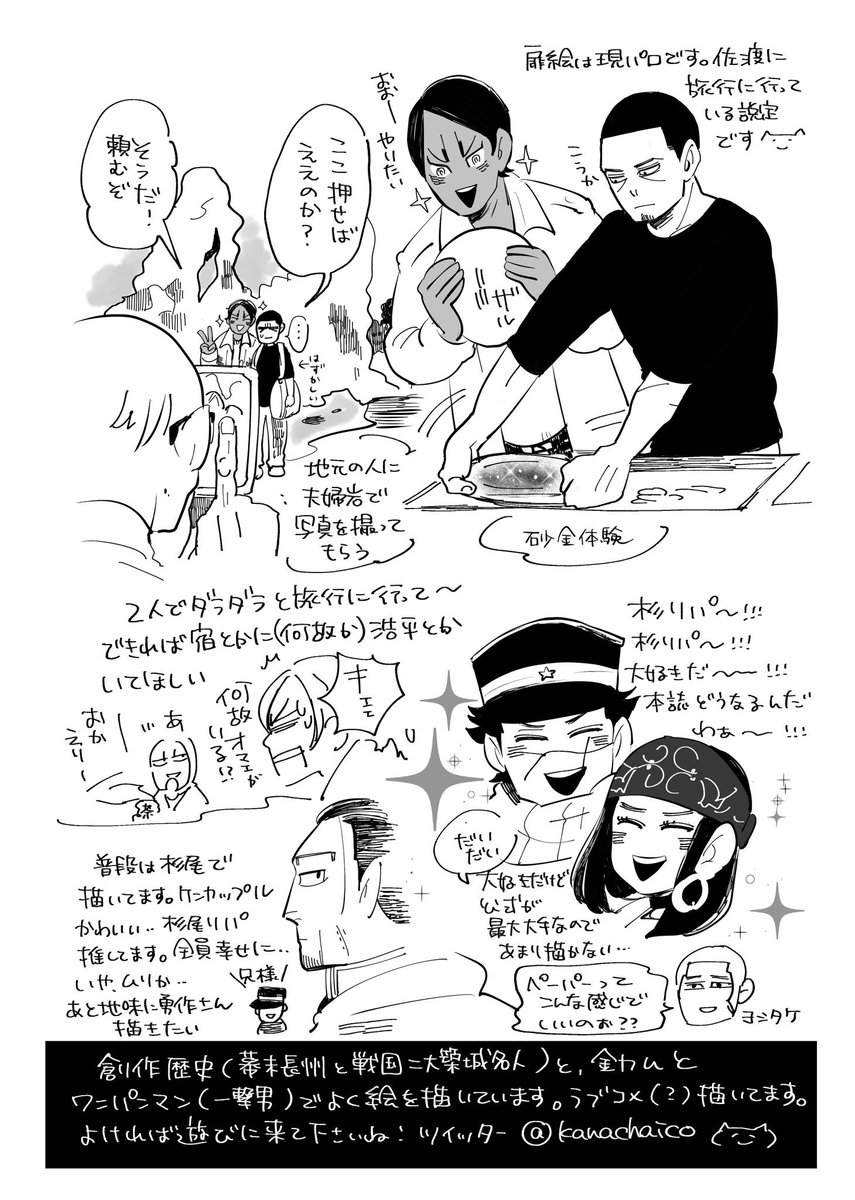 扉絵は現パロです。佐渡に
旅行に行って
いる設定
です
おおー
やいたい
こうか
ザル
ここ押せば
ええのか?
そうだ!
頼むぞ
…
はずかしい
地元の人に
夫婦岩で
写真を撮って
もらう
砂金体験
2人でダラダラと旅行に行って〜
できれば宿とかに(何故か)浩平とか
いてほしい
キエェ
何故オマエが
いる!?
あ
おか
えりー
杉リパ〜!!!
杉リパ〜!!!
大好きだ〜〜!!!
本誌どうなるんだ
わぁ〜!!!
だい
だい
大好きだけど
公式が
最大大手なので
あまり描かない…
普段は杉尾で
描いてます。ケンカップル
かわいい‥杉尾リパ
推してます。全員幸せに‥
いや、ムリか‥
あと地味に勇作さん
描きたい
兄様
ペーパーって
こんな感じで
いいのぉ??
ヨシタケ
創作歴史(幕末長州と戦国二大築城名人)と、金カムと
ワンパンマン(一撃男)でよく絵を描いています。ラブコメ(?)描いてます。
よければ遊びに来て下さいね!ツイッター@kanachaico